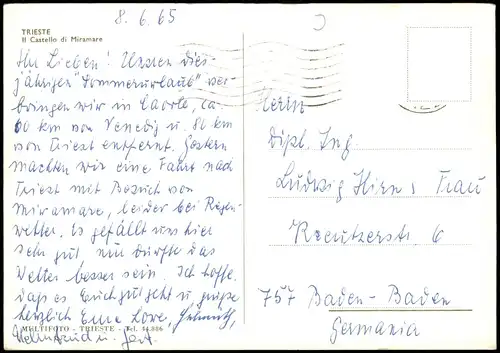 8. 6. 65
TRIESTE
Il Castello di Miramare
Ihr Lieben! Unseren dies-
jährigen "Sommerurlaub" ver-
bringen wir in Caorle, ca
60 km von Venedig u. 80 km
von Triest entfernt. Gestern
machten wir eine Fahrt nach
Triest mit Besuch von
Miramare, leider bei Regen-
wetter. Es gefällt uns hier
sehr gut, nur dürfte das
Wetter besser sein. Ich hoffe,
daß es Euch gut geht u. grüße
herzlich Eure Lowe, Helmuth,
MULTIFOTO - TRIESTE - Tel.
u. Gert.
Herrn
Dipl. Ing
Ludwig Hirn u Frau
Kreutzerstr. 6
757 Baden-Baden
Germania